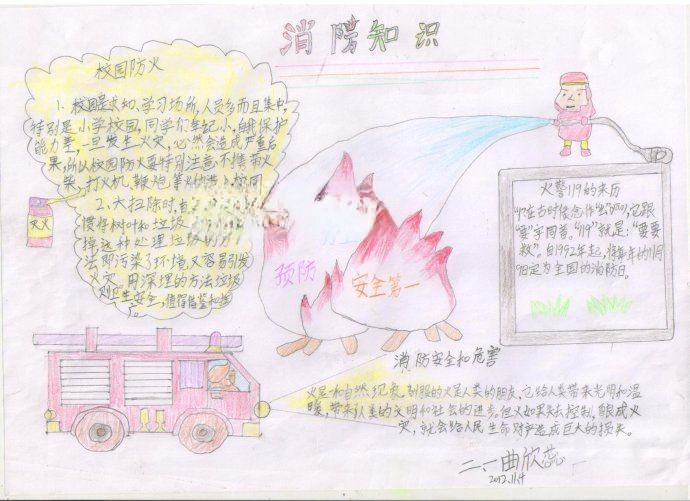 消防知识
校园防火
1、校园是求知、学习场所,人员多而且集中,
特别是小学校园,同学们年纪小,自我保护
能力差,一旦发生火灾,必然会造成严重后
果,所以校园防火要特别注意,不携带火
柴、打火机、鞭炮等火的带入校园
2、大扫除时,
惯将树叶和垃圾
掉,这种处理垃圾的方
法即污染了环境又容易引发
火灾,用深埋的方法垃圾
安全,值得借鉴和推
广。
灭火
预防
安全第一
火警119的来历
"1"在古时候念作"幺"(yāo),它跟
"要"字同音。"119"就是:"要要
救"。自1992年起,将每年的11月
9日定为全国的消防日。
消防安全和危害
火是一种自然现象,驯服的火是人类的朋友,它给人类带来光明和温
暖,带来了人类的文明和社会的进步。但火如果失去控制,酿成火
灾,就会给人民生命财产造成巨大的损失。
二、一曲欣蕊
2012.11.4